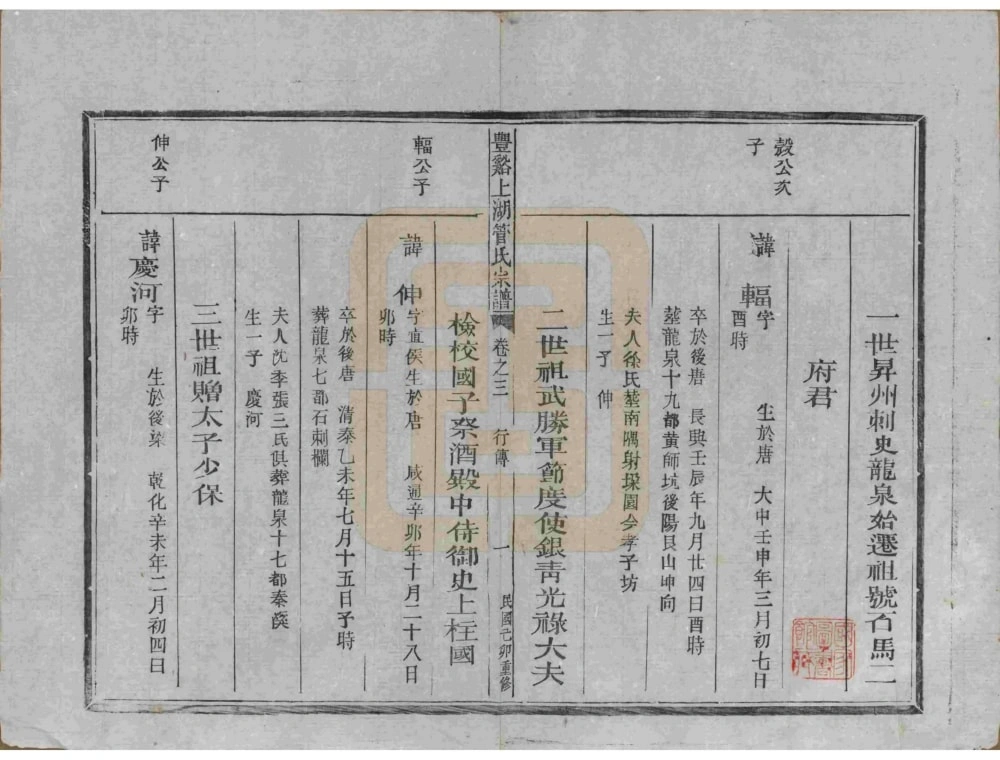 一世昇州刺史龍泉始遷祖號石馬二
府君
穀公次
子
諱輻字
酉時
生於唐 大中壬申年三月初七日
卒於後唐 長興壬辰年九月廿四日酉時
塟龍泉十九都黄師坑後陽艮山坤向
夫人徐氏塟南隅射垜園今孝子坊
生一子 伸
二世祖武勝軍節度使銀靑光祿大夫
豐谿上湖管氏宗譜 卷之三 行傳 一 民國己卯重修
檢校國子祭酒殿中侍御史上柱國
輻公子
諱伸字宜侯生於唐 咸通辛卯年十月二十八日
卯時
卒於後唐 清泰乙未年七月十五日子時
葬龍泉七都石刺欄
夫人沈季張三氏俱葬龍泉十七都秦溪
生一子 慶河
三世祖贈太子少保
伸公子
諱慶河字 生於後梁 乾化辛未年二月初四日
卯時